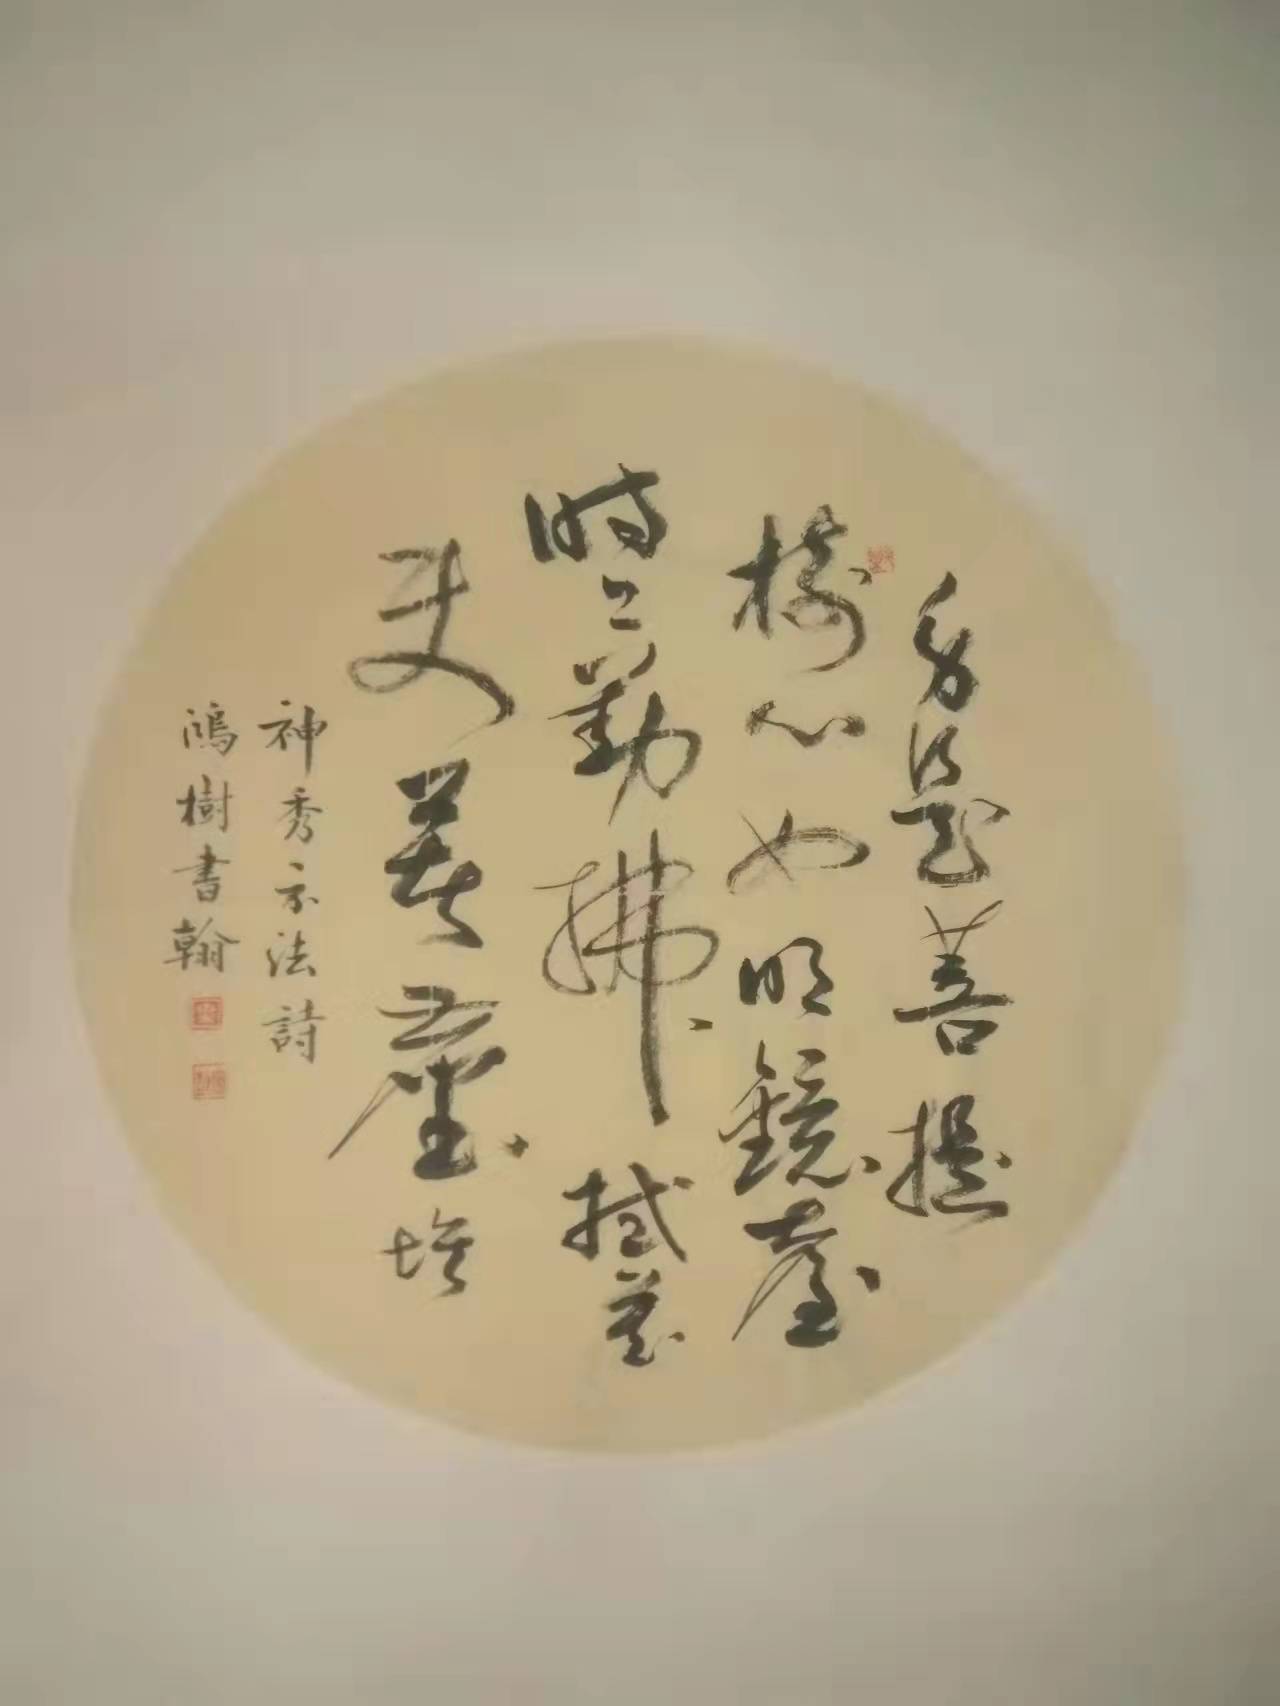 身是菩提
樹心如明鏡臺
時〻勤拂拭莫
使惹塵埃
神秀示法詩
鴻樹書翰